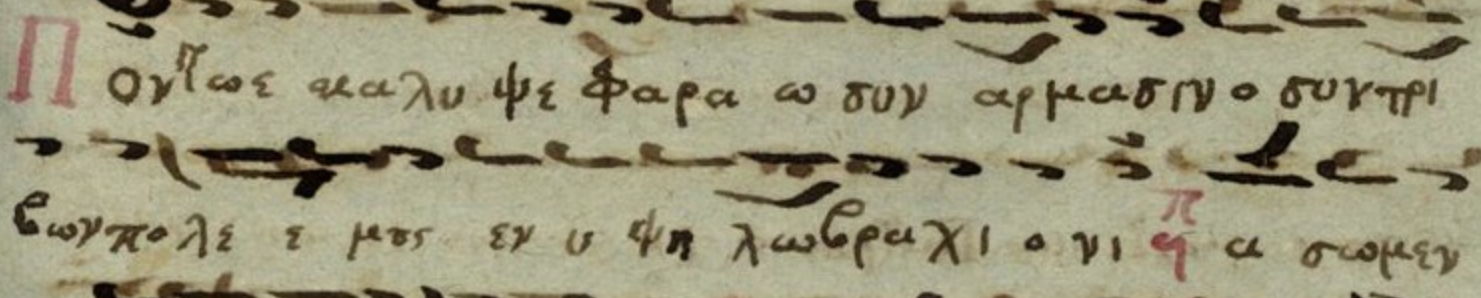 Πον τω ε κα λυ ψε Φα ρα ω συν αρ μα σιν ο συν τρι
βων πο λε ε μους εν υ ψη λω βρα χι ο νι α σω μεν